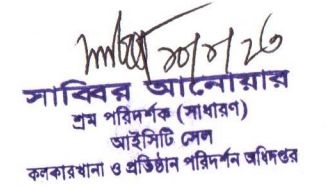 ২০/৮/২৩
সাব্বির আনোয়ার
শ্রম পরিদর্শক (সাধারণ)
আইসিটি সেল
কলকারখানা ও প্রতিষ্ঠান পরিদর্শন অধিদপ্তর